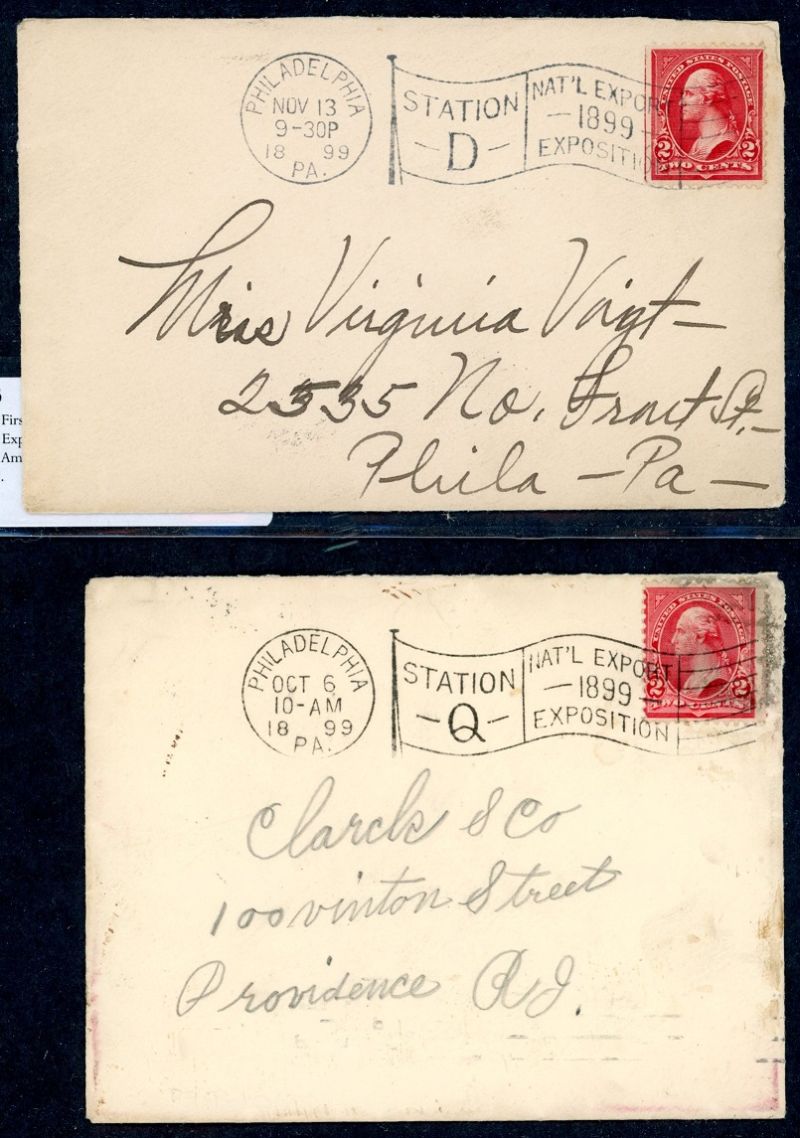 PHILADELPHIA
NOV 13
9-30P
18 99
PA.
STATION
-D-
NAT'L EXPORT
-1899-
EXPOSITION
UNITED STATES POSTAGE
2 2
TWO CENTS
Miss Virginia Voigt-
2535 No. Front St.-
Phila - Pa -
Firs
Exp
Am
.
PHILADELPHIA
OCT 6
10-AM
18 99
PA.
STATION
-Q-
NAT'L EXPORT
-1899-
EXPOSITION
UNITED STATES POSTAGE
2 2
TWO CENTS
Clarck & Co
100 vinton Street
Providence R.I.